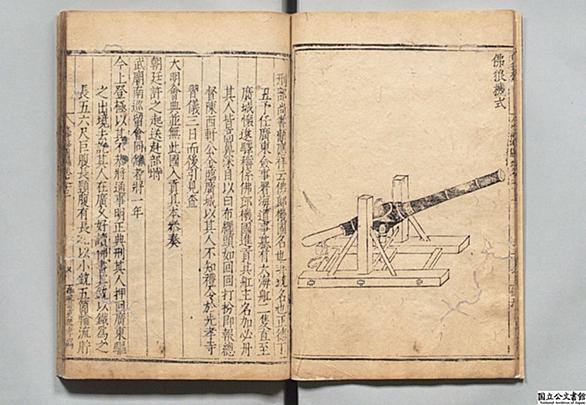 佛狼機式
刑部尚書顧應祥云佛郎機國名也非銃名也正德丁
丑予任廣東僉事署海道事驀有大海船二隻直至
廣城懷遠驛稱係佛郎機國進貢其船主名加必丹
其人皆高鼻深目以白布纏頭如回回打扮即報總
督陳西軒公金臨廣城以其人不知禮令於光孝寺
習儀三日而後引見查
大明會典並無此國入貢具本參奏
朝廷許之起送赴部時
武廟南巡留會同館者將一年
今上登極以其不恭將通事明正典刑其人押回廣東驅
之出境去訖其人在廣久好讀佛書其銃以鐵為之
長五六尺巨腹長頸腹有長孔以小銃五箇輪流貯
国立公文書館
National Archives of Japan